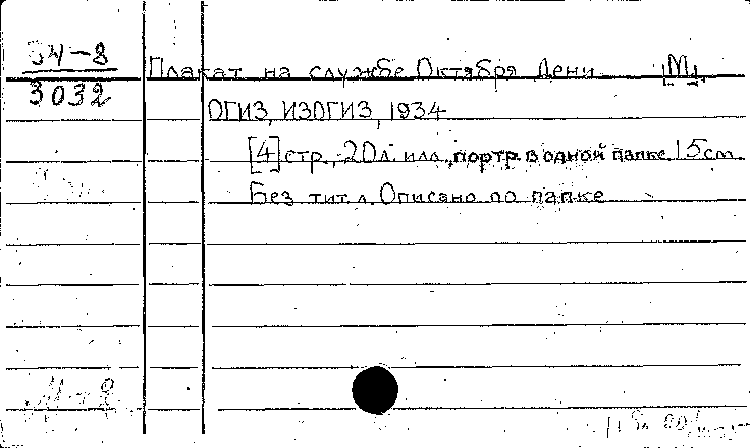 34-8
3032
Плакат на службе Октября Дени [М],
ОГИЗ, ИЗОГИЗ, 1934
[4] стр., 20л. илл., портр. в одной папке. 15см.
Без тит. л. Описано по папке